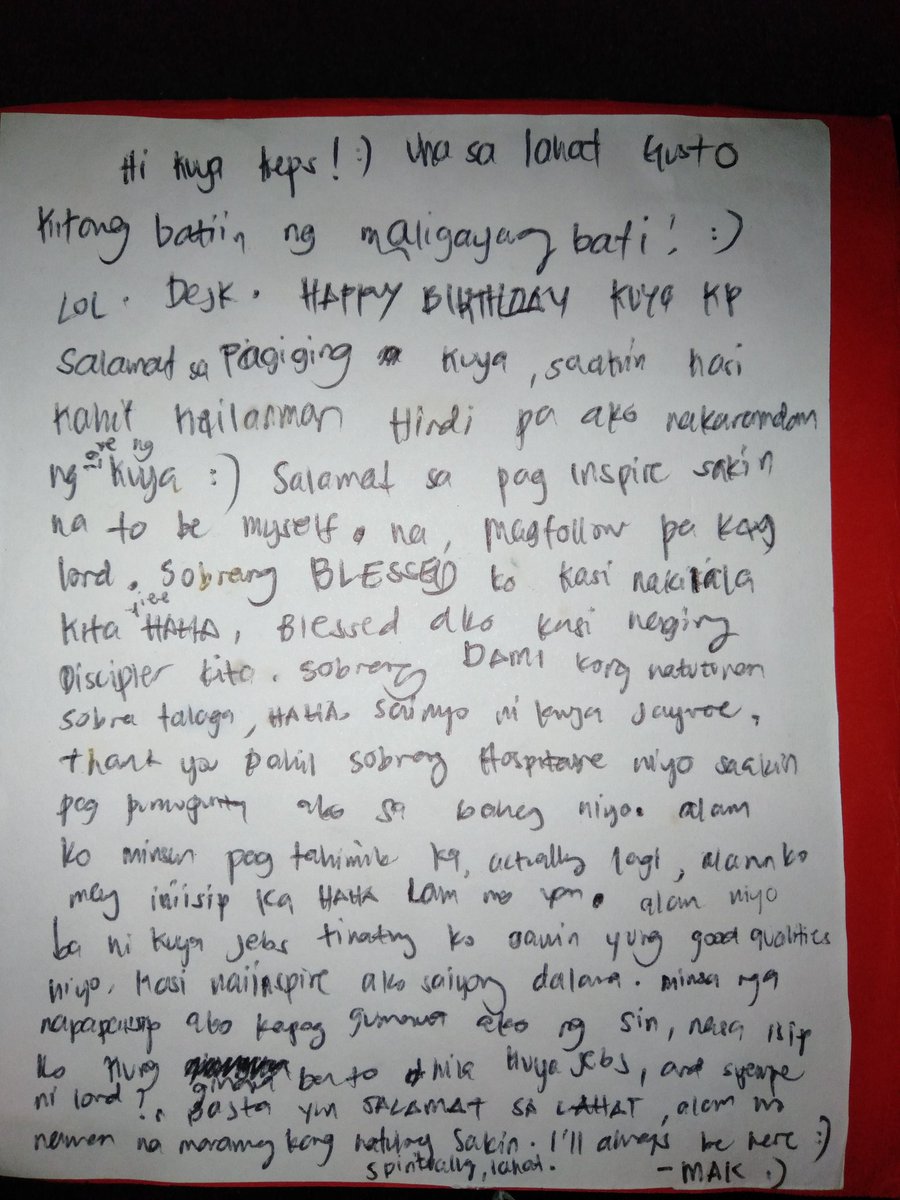 Hi kuya keps! :) Una sa lahat Gusto
Kitong batiin ng maligayag bati! :)
LOL. Dejk. HAPPY BIRTHDAY KUYA KP
Salamat sa Pagiging kuya, saakin kasi
Kahit kailanman Hindi pa ako nakaramdam
ng care ng kuya :) Salamat sa pag inspire sakin
na to be myself. na, magfollow pa kay
lord. Sobrang BLESSED ko kasi nakilala
kita yiee HAHA, Blessed ako kasi naging
Discipler kita. Sobrang DAMI kong natutunan
sobra talaga, HAHA. Sainyo ni kuya Jayroe.
thank you Dahil sobrang Hospitable niyo saakin
pag pumupunta ako sa bahay niyo. alam
ko minsan pag tahimik ka, actually lagi, alam ko
may iniisip ka HAHA Lam mo yan. alam niyo
ba ni kuya jebs tinatry ko gawin yung good qualities
niyo. Kasi naiinspire ako saiyong dalawa. minsa nga
napapaisip ako kapag gumawa ako ng sin, nasa isip
ko kung ginawa ba to nila kuya jebs, and syempre
ni lord?. Basta yun SALAMAT SA LAHAT, alam mo
naman na maramay kang natulong sakin. I'll always be here :)
spiritually, lahat. - MAK :)